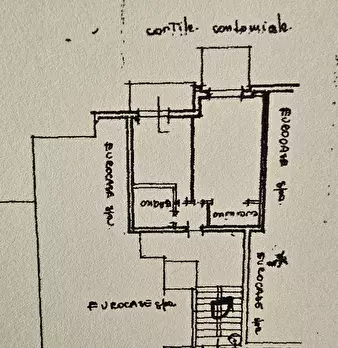 cortile condominiale
EUROCASE spa
EUROCASE spa
BAGNO
cucinino
EUROCASE spa
EUROCASE spa